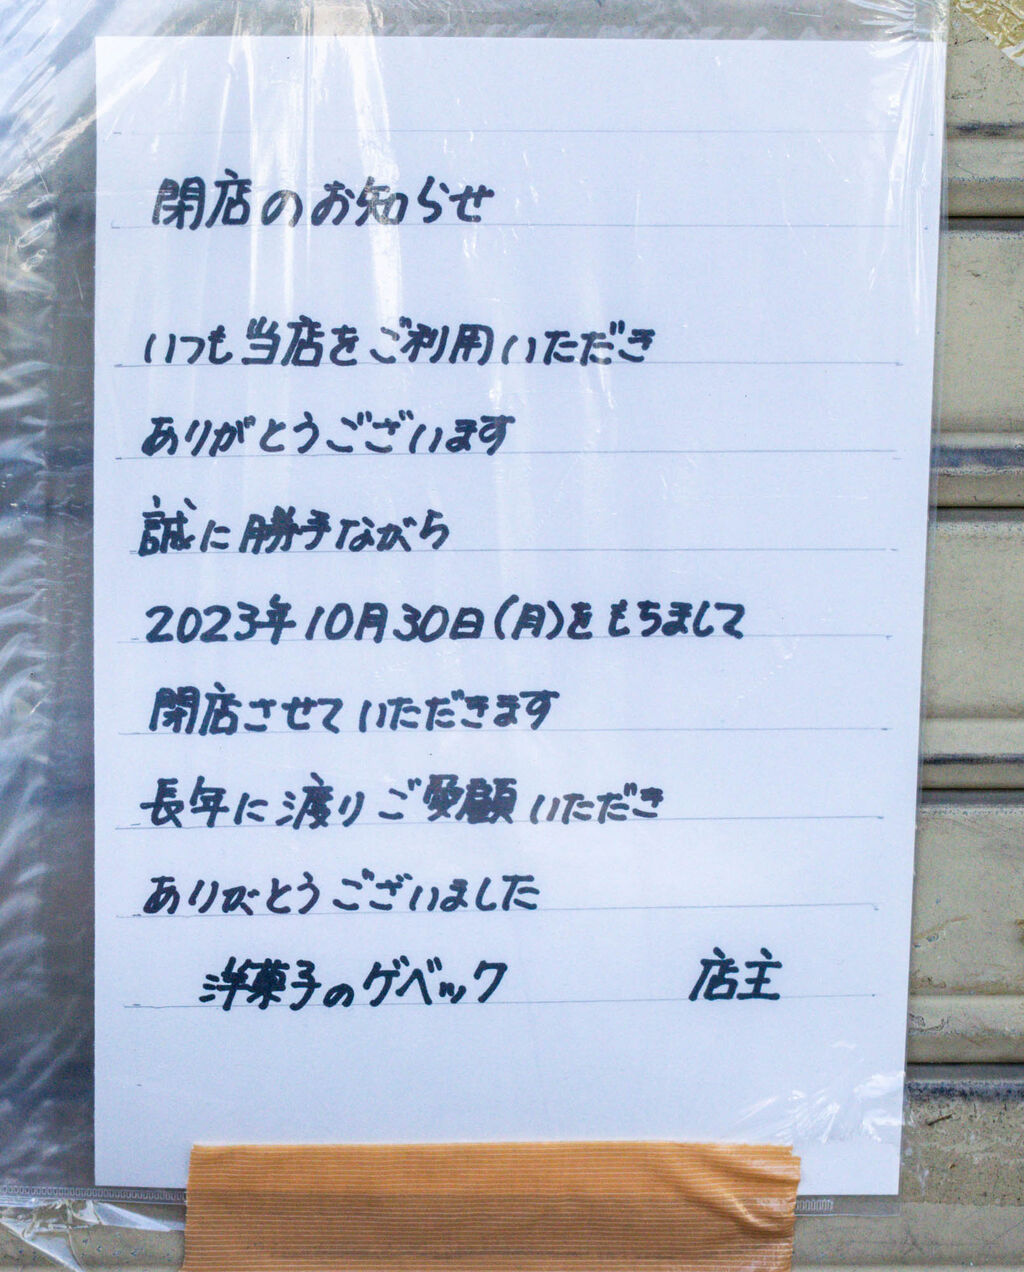 閉店のお知らせ
いつも当店をご利用いただき
ありがとうございます
誠に勝手ながら
2023年10月30日(月)をもちまして
閉店させていただきます
長年に渡りご愛顧いただき
ありがとうございました
洋菓子のゲベック 店主